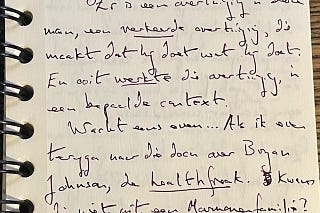 Er is een overtuiging in deze
man, een verkeerde overtuiging, die
maakt dat hij doet wat hij doet.
En ooit werkte die overtuiging, in
een bepaalde context.
Wacht eens even... Als ik even
terugga naar die docu over Bryan
Johnson, de healthfreak. Kwam
die niet uit een Mormonenfamilie?